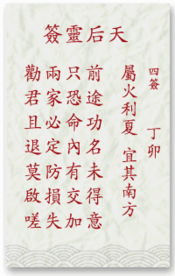 天后靈簽
四簽 丁卯
屬火利夏 宜其南方
前途功名未得意
只恐命內有交加
兩家必定防損失
勸君且退莫啟嗟